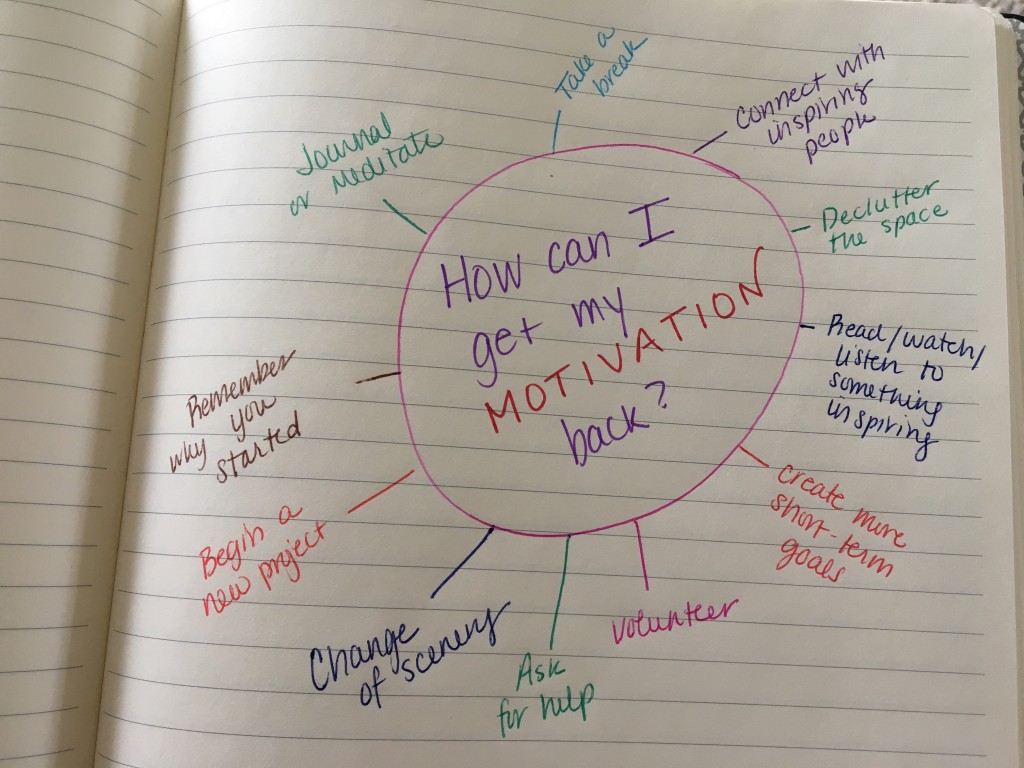 How can I
get my
MOTIVATION
back?
Take a
break
Connect with
inspiring
people
Declutter
the space
Read/watch/
listen to
something
inspiring
create more
short-term
goals
volunteer
Ask
for help
Change
of scenery
Begin a
new project
Remember
why you
started
Journal
or Meditate